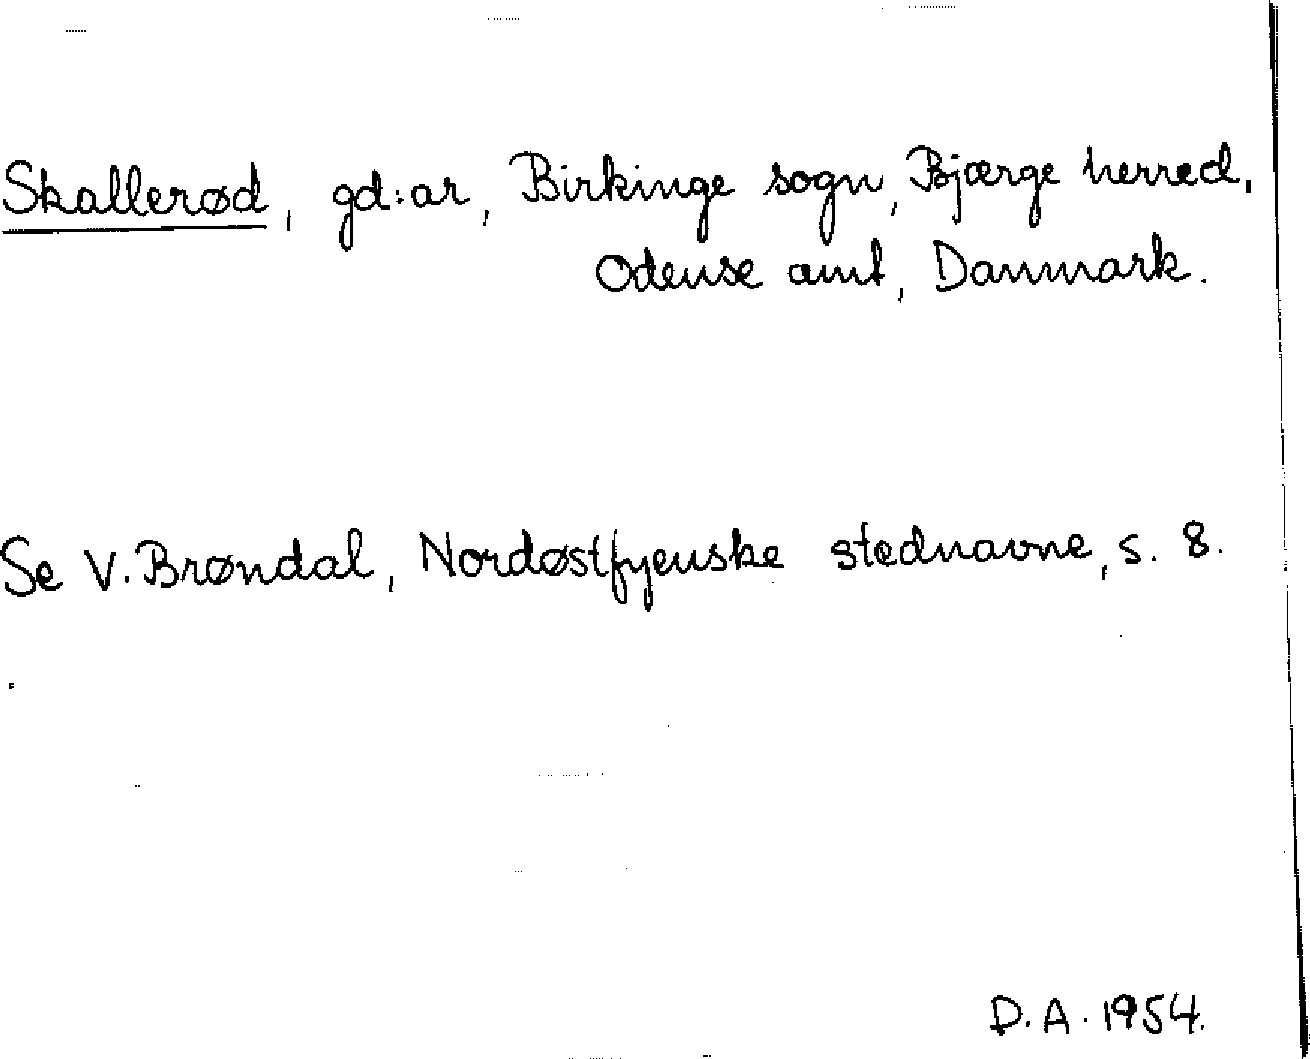 Skallerød, gd:ar, Birkinge sogn, Bjærge herred,
Odense amt, Danmark.
Se V. Brøndal, Nordøstfyenske stednavne, s. 8.
D.A. 1954.